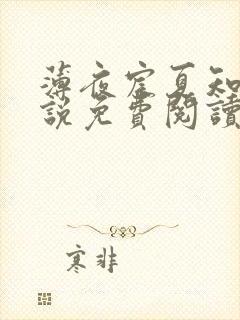 薄夜宸夏知
說免費閱讀
寒非